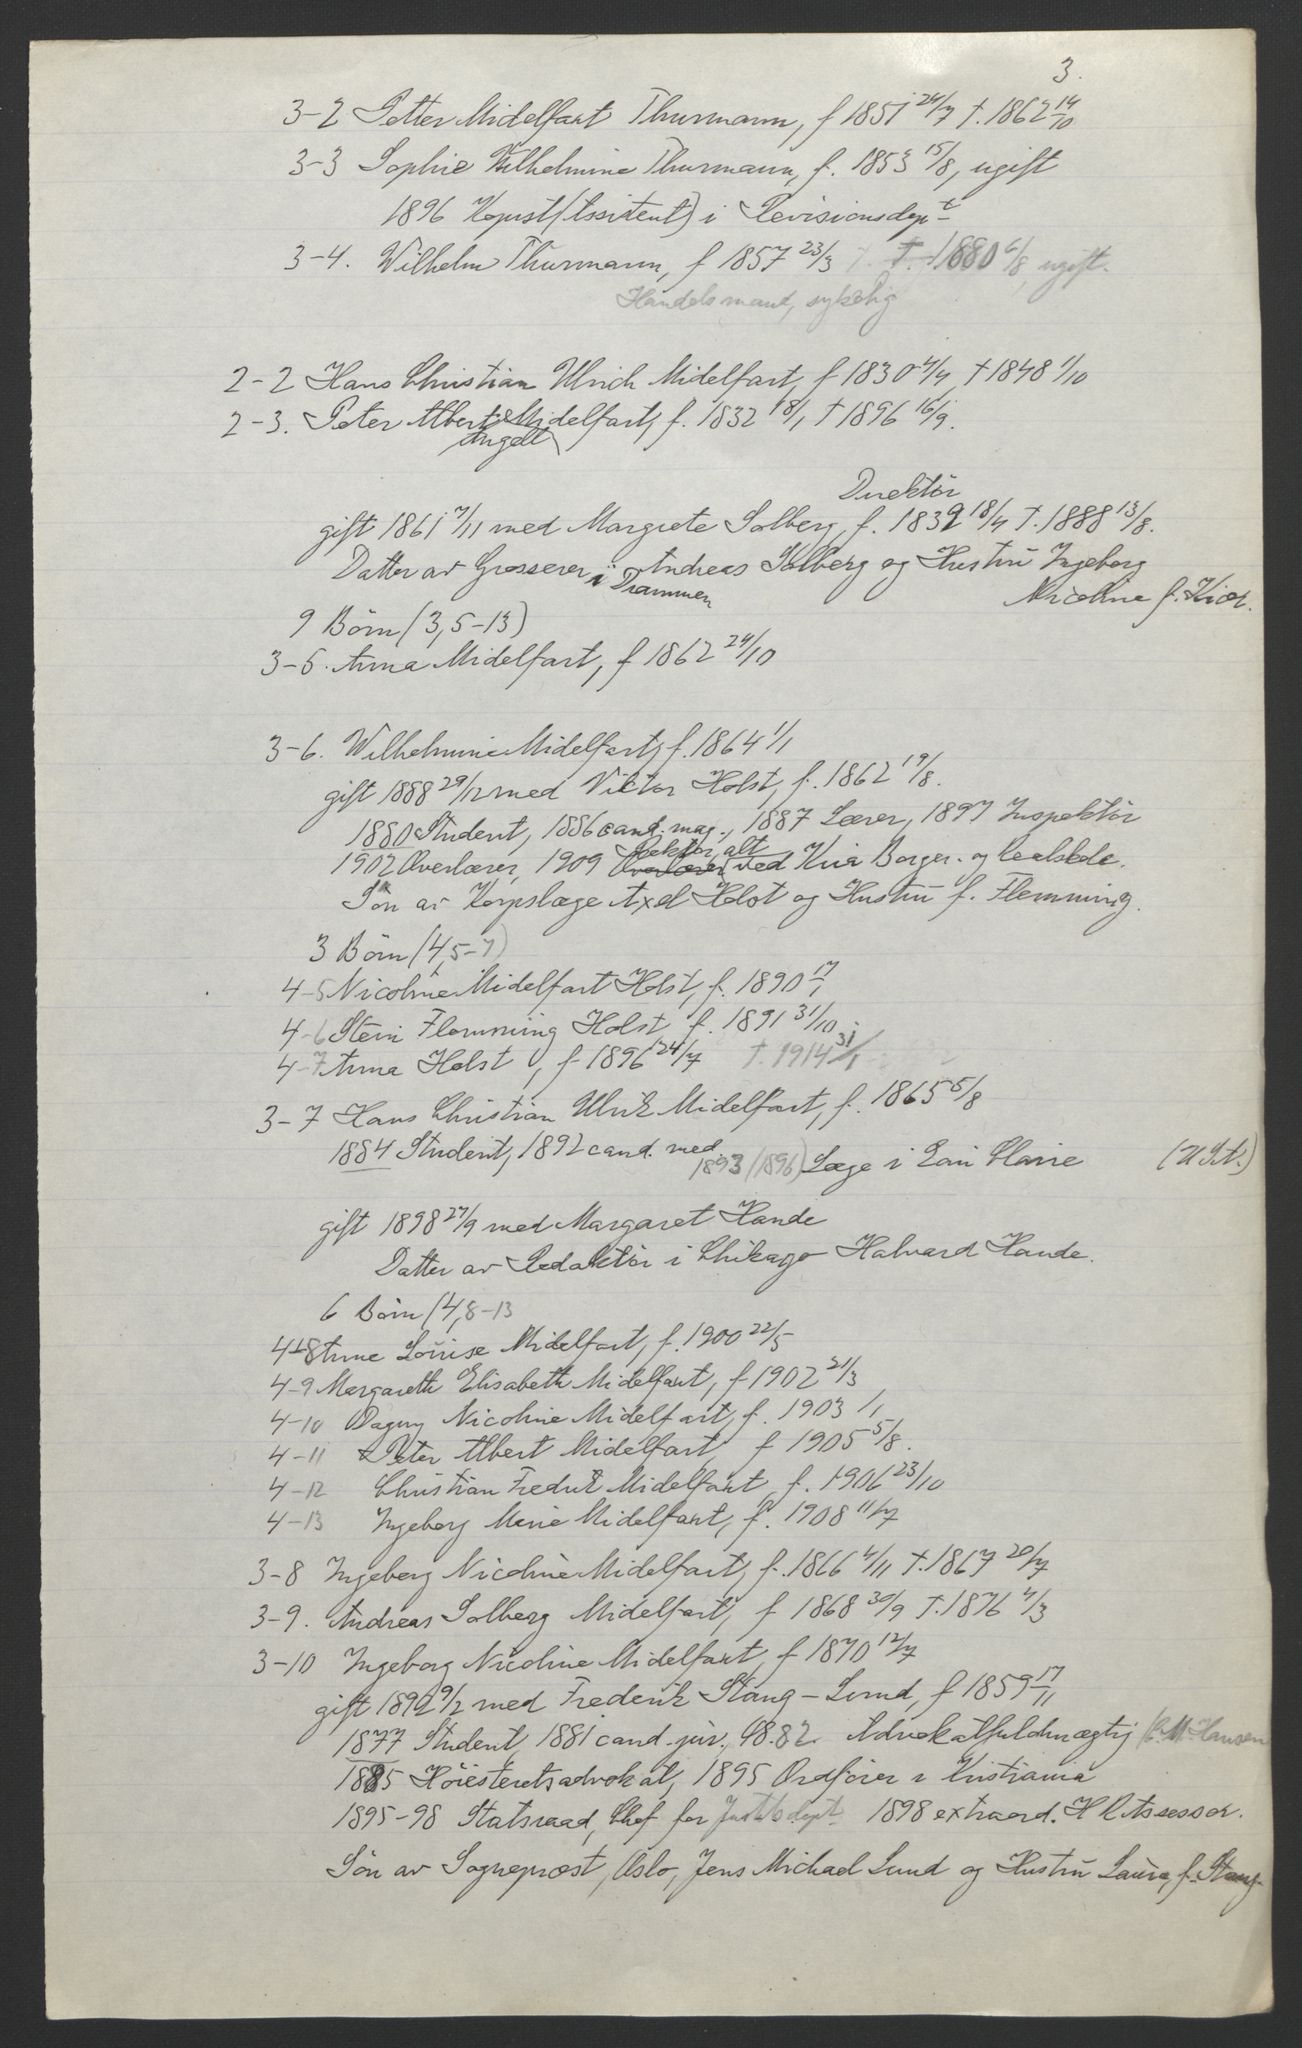 3.
3-2 Petter Midelfart Thurmann, f 1851 24/7 †. 1862 14/10
3-3 Sophie Wilhelmine Thurmann, f. 1853 15/8, ugift
1896 Kopist (Assistent) i Revisionsdept
3-4. Wilhelm Thurmann, f 1857 23/3 †. 1880 6/8, ugift.
Handelsmand, sykelig
2-2 Hans Christian Ulrich Midelfart, f 1830 4/4 † 1848 1/10
2-3. Peter Albert Midelfart, f. 1832 18/1 † 1896 16/9.
Angell
Direktör
gift 1861 7/11 med Margrete Solberg, f. 1839 18/4 †. 1888 13/8.
Datter av Grosserer i Andreas Solberg og Hustru Ingeborg
Drammen Nicoline f. Kiær.
9 Börn (3,5-13)
3-5. Anna Midelfart, f 1862 24/10
3-6. Wilhelmine Midelfart, f. 1864 1/1
gift 1888 29/12 med Viktor Holst, f. 1862 19/8.
1880 Student, 1886 cand. mag., 1887 Lærer, 1897 Inspektör
Rektor, alt
1902 Overlærer, 1909 Overlærer ved Kria Borger- og Realskole.
Sön av Korpslæge Axel Holst og Hustru f. Flemming.
3 Börn (4,5-7)
4-5 Nicoline Midelfart Holst, f. 1890 17/1
4-6 Stein Flemming Holst f. 1891 31/10
4-7 Anna Holst, f 1896 24/7 †. 1914 31/1
3-7 Hans Christian Ulrik Midelfart, f. 1865 5/8
1884 Student, 1892 cand. med.
1893 (1896) Læge i Eau Claire (U.S.A.)
gift 1898 27/9 med Margaret Hande
Datter av Redaktör i Chikago Halvard Hande.
6 Börn (4,8-13
4-8 Anne Louise Midelfart, f. 1900 22/5
4-9 Margareth Elisabeth Midelfart, f 1902 21/3
4-10 Dagny Nicoline Midelfart, f. 1903 /1
4-11 Peter Albert Midelfart, f 1905 5/8.
4-12 Christian Fredrik Midelfart, f. 1906 23/10
4-13 Ingeborg Marie Midelfart, f. 1908 11/7
3-8 Ingeborg Nicoline Midelfart, f. 1866 4/11 †. 1867 20/7
3-9. Andreas Solberg Midelfart, f 1868 30/9 †. 1876 4/3
3-10 Ingeborg Nicoline Midelfart, f 1870 12/7
gift 1892 9/2 med Frederik Stang-Lund, f 1859 17/11
1877 Student, 1881 cand. jur., 98.82. Advokatfuldmægtig Hansen
1885 Höiesteretsadvokat, 1895 Ordförer i Kristiania
1895-98 Statsraad, Chef for Justisdept 1898 extraord. H R Assessor.
Sön av Sogneprost, Oslo, Jens Michael Lund og Hustru Laura, f. Stang